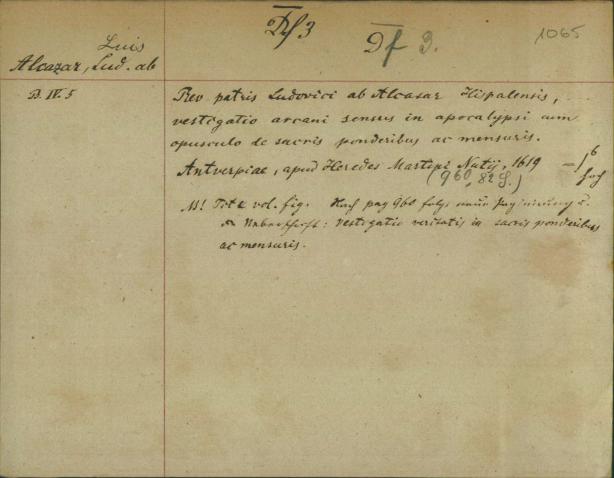 Df 3
Df 3.
1065
Luis
Alcazar, Lud. ab
B. IV. 5
Rev patris Ludovici ab Alcasar Hispalensis,
vestigatio arcani sensus in apocalypsi cum
opusculo de sacris ponderibus ac mensuris.
Antverpiae, apud Heredes Martini Nutij, 1619
(960, 82 S.)
6
fach
M! Tit & vol. fig. Nach pag 960 folgt neue Paginierung u.
Unberschrift: Vestigatio veritatis in sacris ponderibus
ac mensuris.